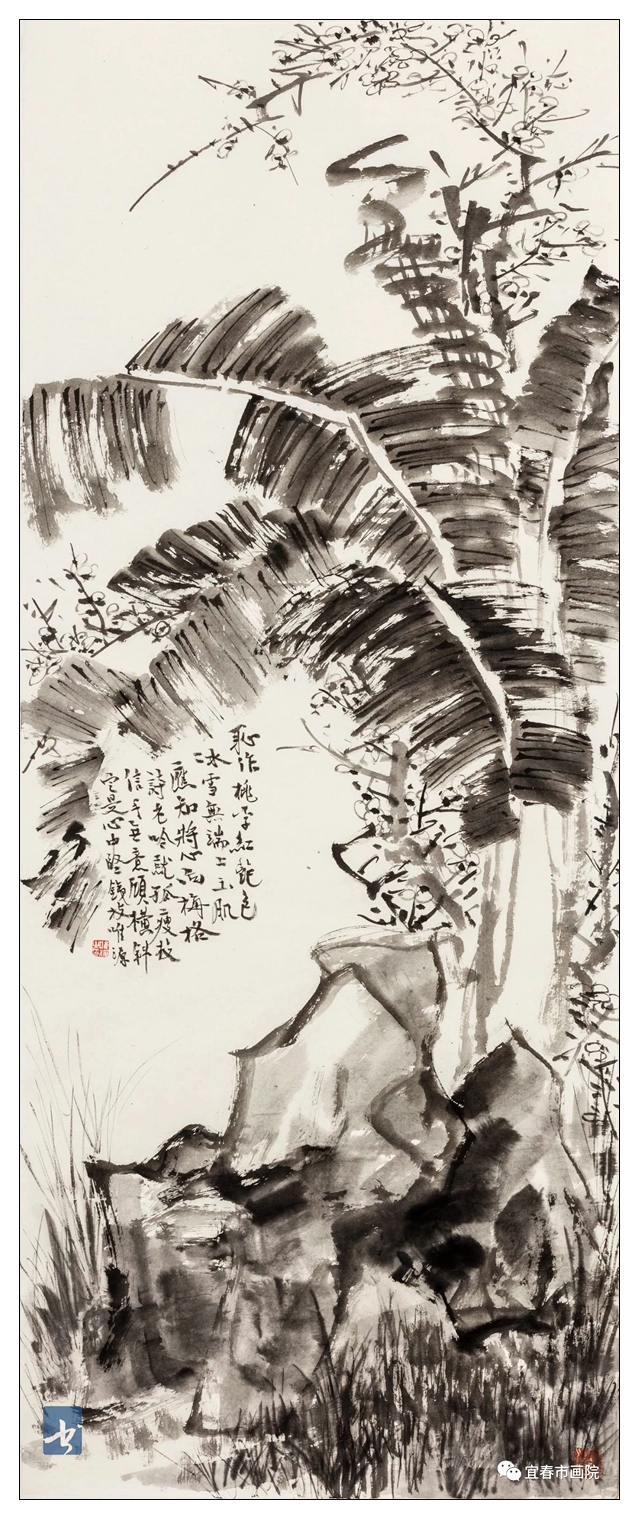 恥作桃李紅艷色
冰雪無端上玉肌
應知將心向梅格
詩老吟孤瘦枝
信手無意顧橫斜
是心中
宜春市画院